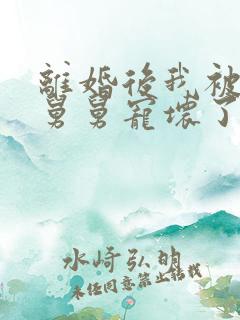 離婚後我被
舅舅寵壞了
水崎弘明
未經同意禁止轉載